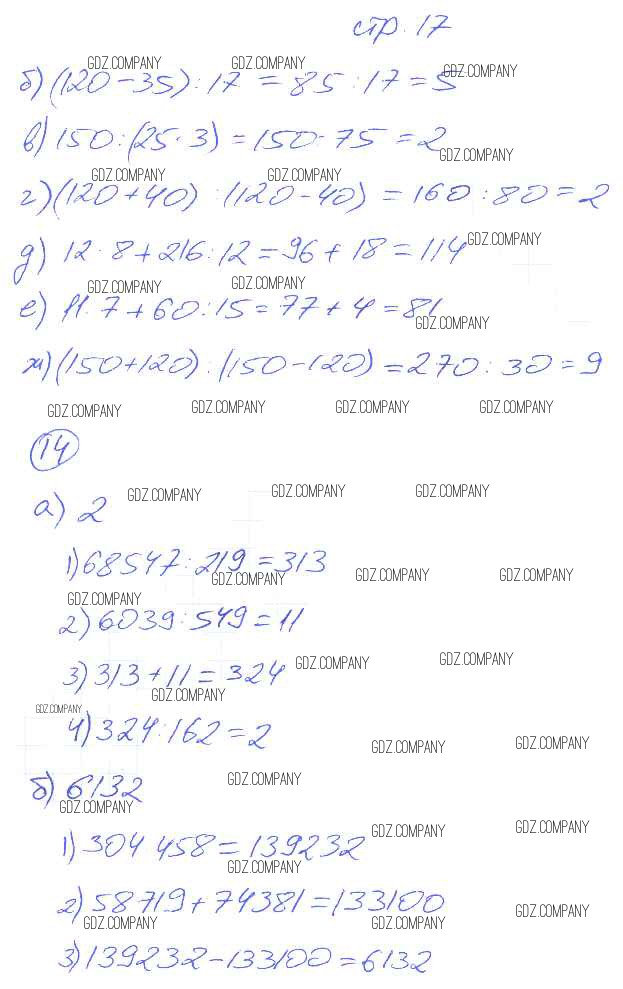 стр. 17
GDZ.COMPANY GDZ.COMPANY GDZ.COMPANY
б) (120 - 35) : 17 = 85 : 17 = 5
в) 150 : (25 · 3) = 150 · 75 = 2
GDZ.COMPANY
GDZ.COMPANY GDZ.COMPANY
г) (120 + 40) : (120 - 40) = 160 : 80 = 2
GDZ.COMPANY
д) 12 · 8 + 216 : 12 = 96 + 18 = 114
GDZ.COMPANY GDZ.COMPANY
е) 11 · 7 + 60 : 15 = 77 + 4 = 81
GDZ.COMPANY
ж) (150 + 120) : (150 - 120) = 270 : 30 = 9
GDZ.COMPANY GDZ.COMPANY GDZ.COMPANY GDZ.COMPANY
14
GDZ.COMPANY GDZ.COMPANY GDZ.COMPANY
а) 2
1) 68547 : 219 = 313
GDZ.COMPANY GDZ.COMPANY GDZ.COMPANY
GDZ.COMPANY
2) 6039 : 549 = 11
GDZ.COMPANY GDZ.COMPANY
3) 313 + 11 = 324
GDZ.COMPANY
GDZ.COMPANY
4) 324 : 162 = 2
GDZ.COMPANY GDZ.COMPANY
GDZ.COMPANY
б) 6132
GDZ.COMPANY
GDZ.COMPANY GDZ.COMPANY
1) 304 458 = 139232
GDZ.COMPANY
2) 58719 + 74381 = 133100
GDZ.COMPANY GDZ.COMPANY GDZ.COMPANY
3) 139232 - 133100 = 6132